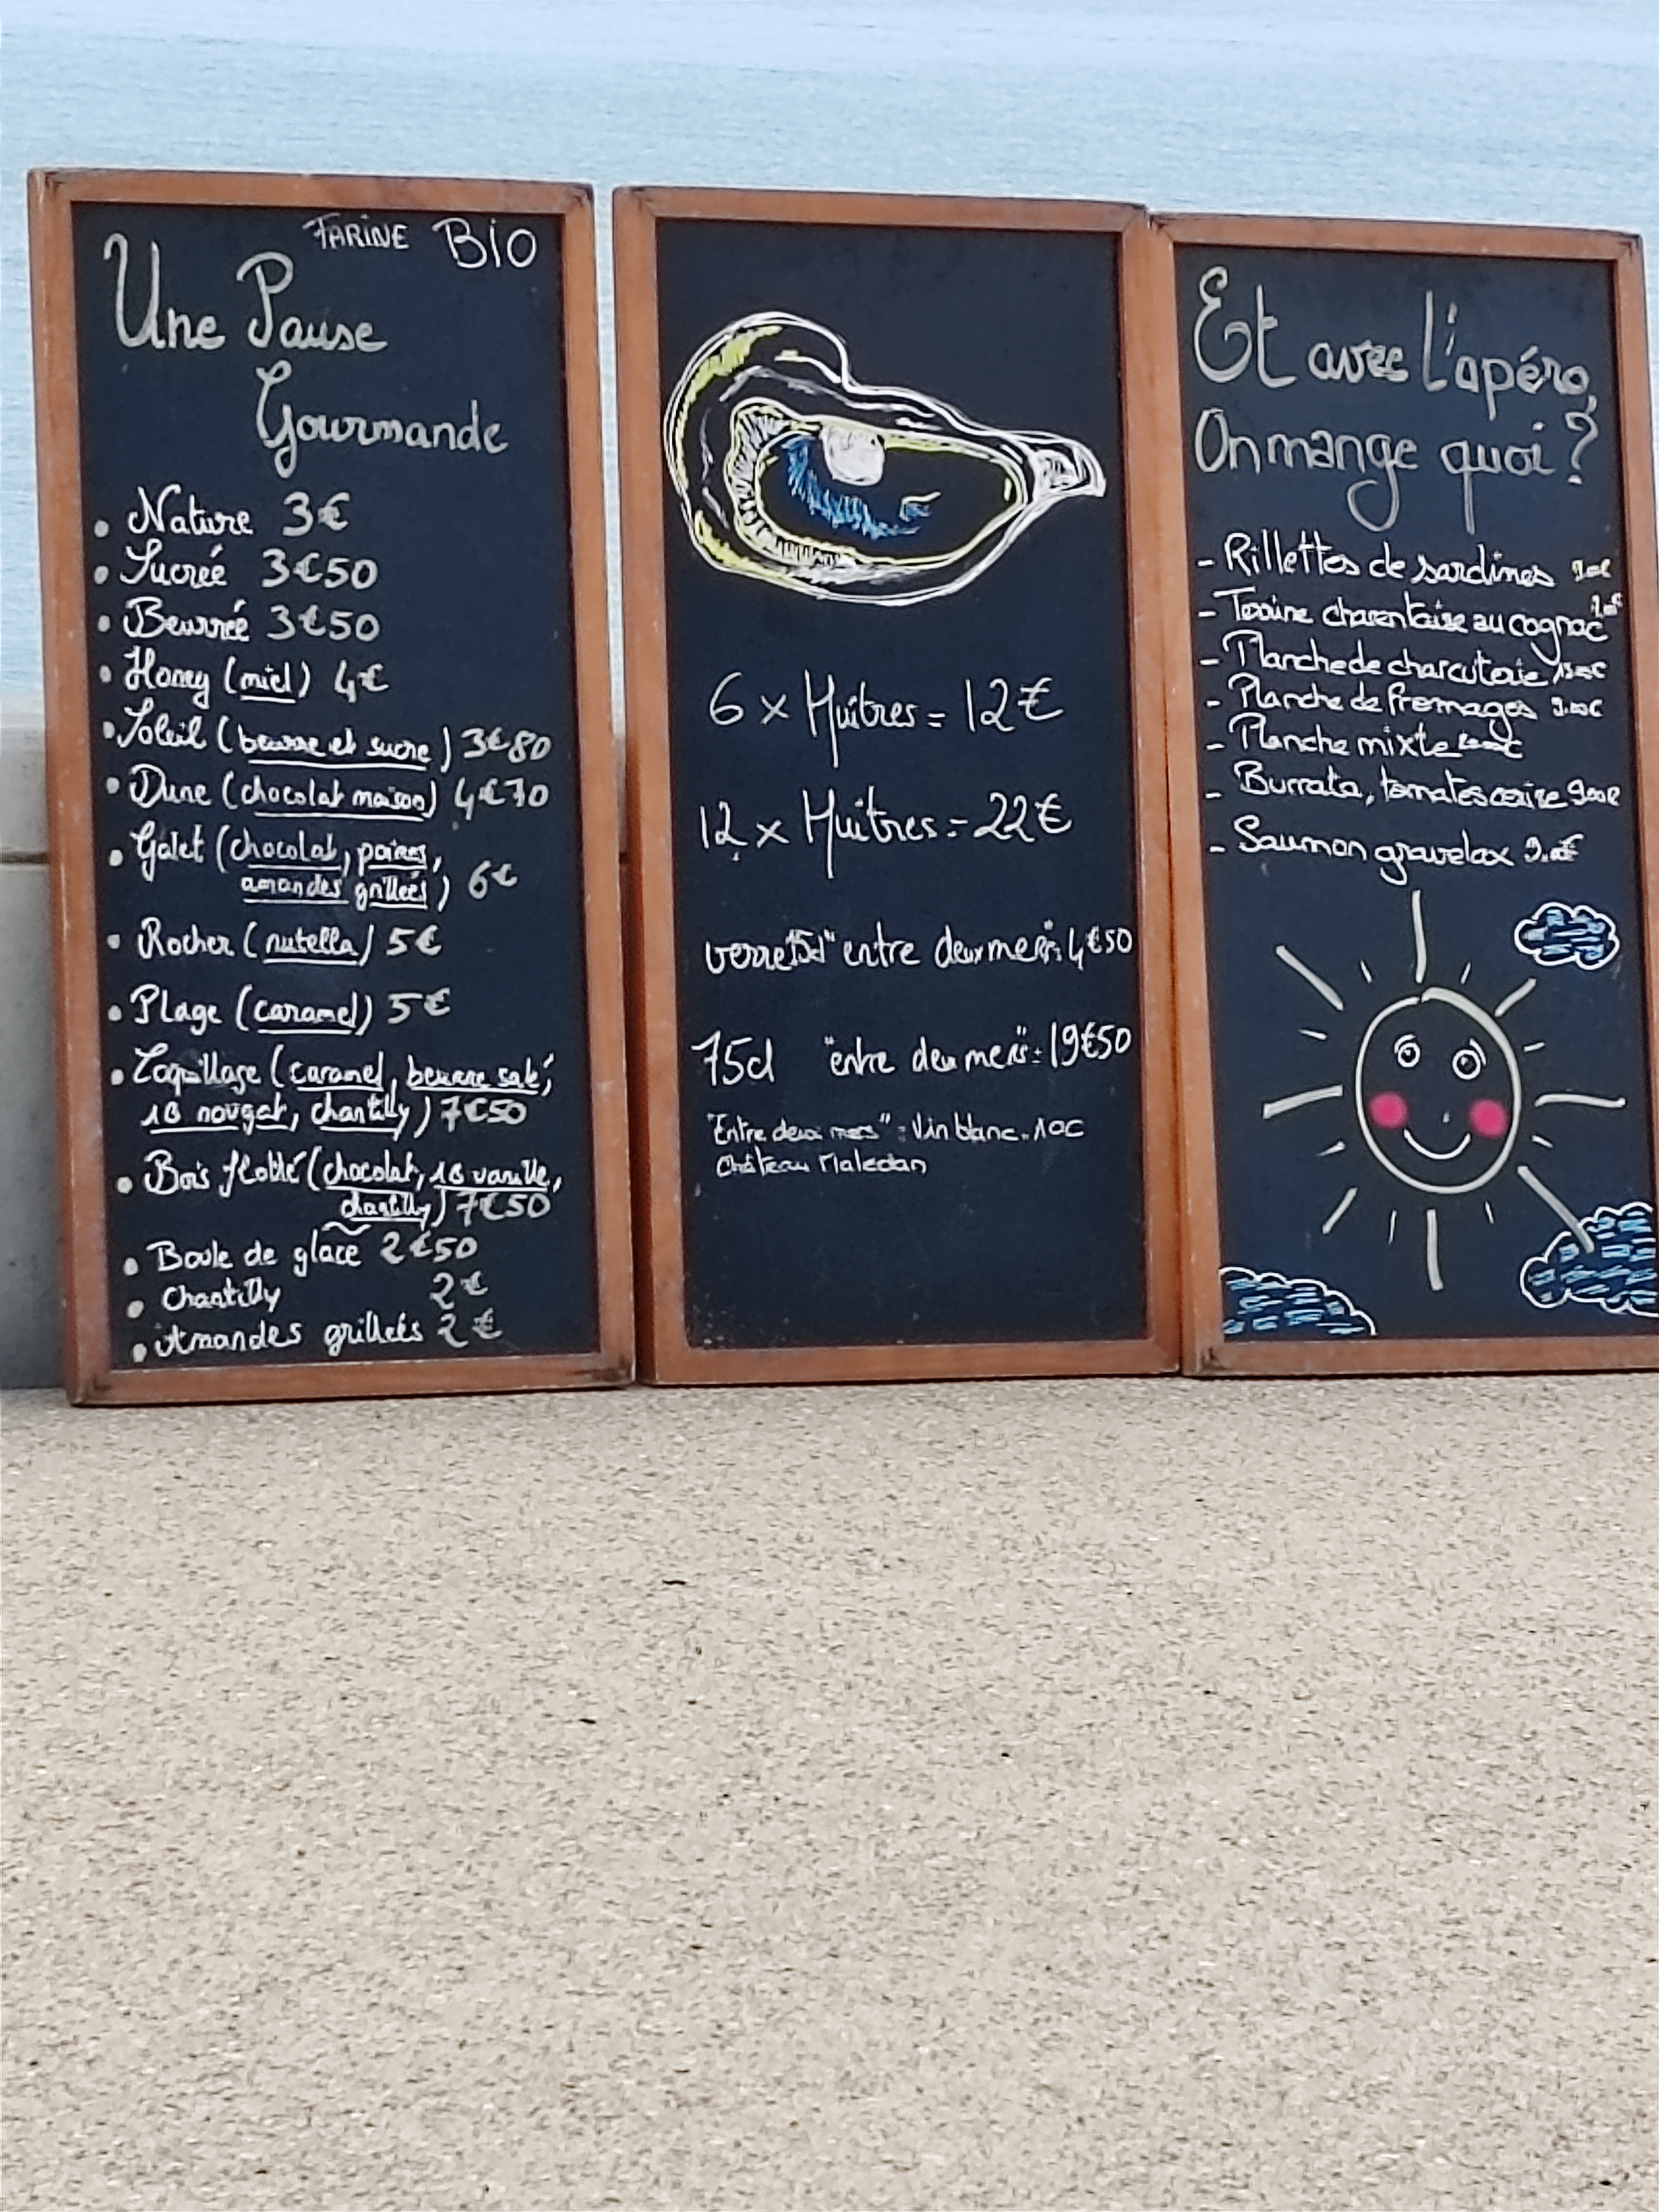 FARINE BIO
Une Pause
Gourmande
• Nature 3€
• Sucrée 3€50
• Beurrée 3€50
• Honey (miel) 4€
• Soleil (beurre et sucre) 3€80
• Dune (chocolat maison) 4€70
• Galet (chocolat, poires,
amandes grillées) 6€
• Rocher (nutella) 5€
• Plage (caramel) 5€
• Coquillage (caramel, beurre salé,
1B nougat, chantilly) 7€50
• Bois flotté (chocolat, 1B vanille,
chantilly) 7€50
• Boule de glace 2€50
• Chantilly 2€
• Amandes grillées 2€
6 x Huîtres = 12€
12 x Huîtres = 22€
verre 15cl "entre deux mers": 4€50
75cl "entre deux mers": 19€50
"Entre deux mers" : Vin blanc. AOC
Château Maledan
Et avec l'apéro,
On mange quoi ?
- Rillettes de sardines
- Terrine charentaise au cognac
- Planche de charcuterie
- Planche de fromages
- Planche mixte
- Burrata, tomates cerise
- Saumon gravelax